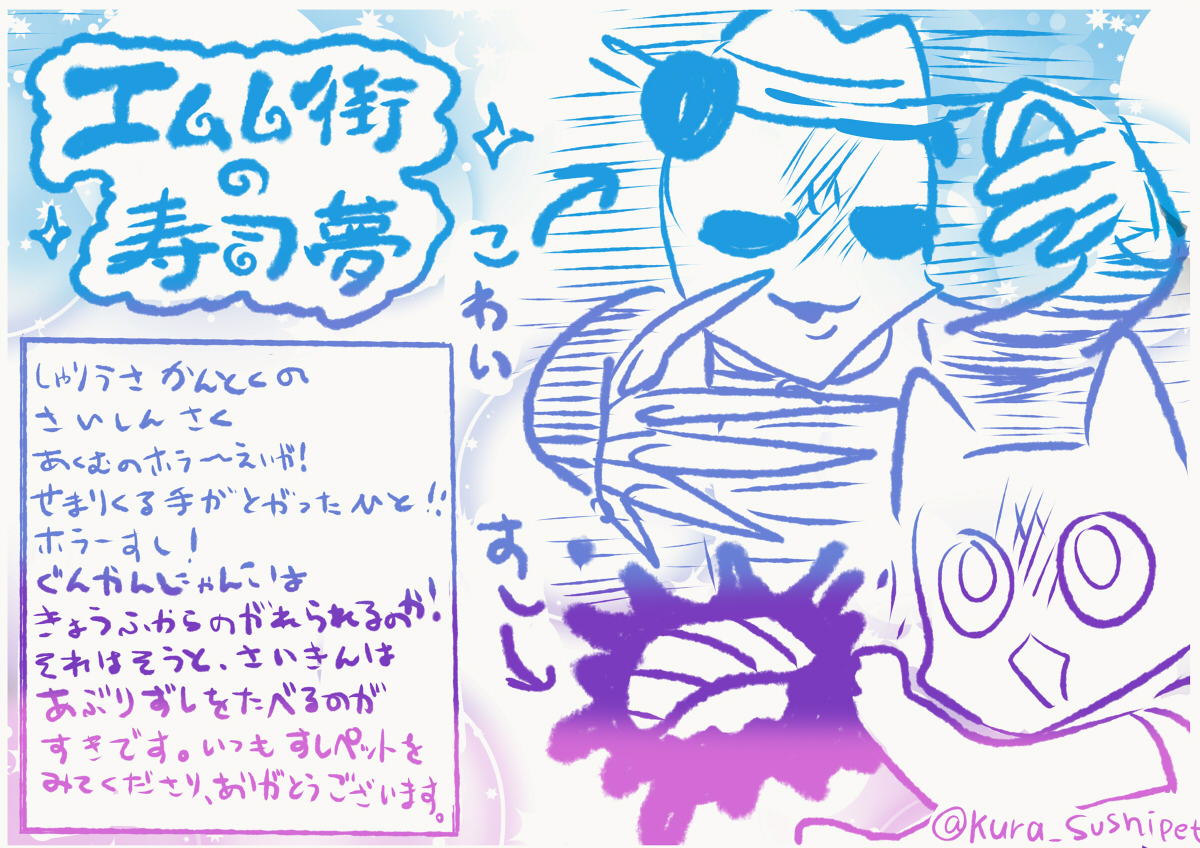 エムム街
の
寿司夢
しゃりうさ かんとくの
さいしん さく
あくむのホラ〜えいが!
せまりくる手がとがったひと!!
ホラーすし!
ぐんかんにゃんこは
きょうふからのがれられるのか!
それはそうと、さいきんは
あぶりずしをたべるのが
すきです。いつもすしペットを
みてくださり、ありがとうございます。
こわい
すし
@Kura_Sushipet